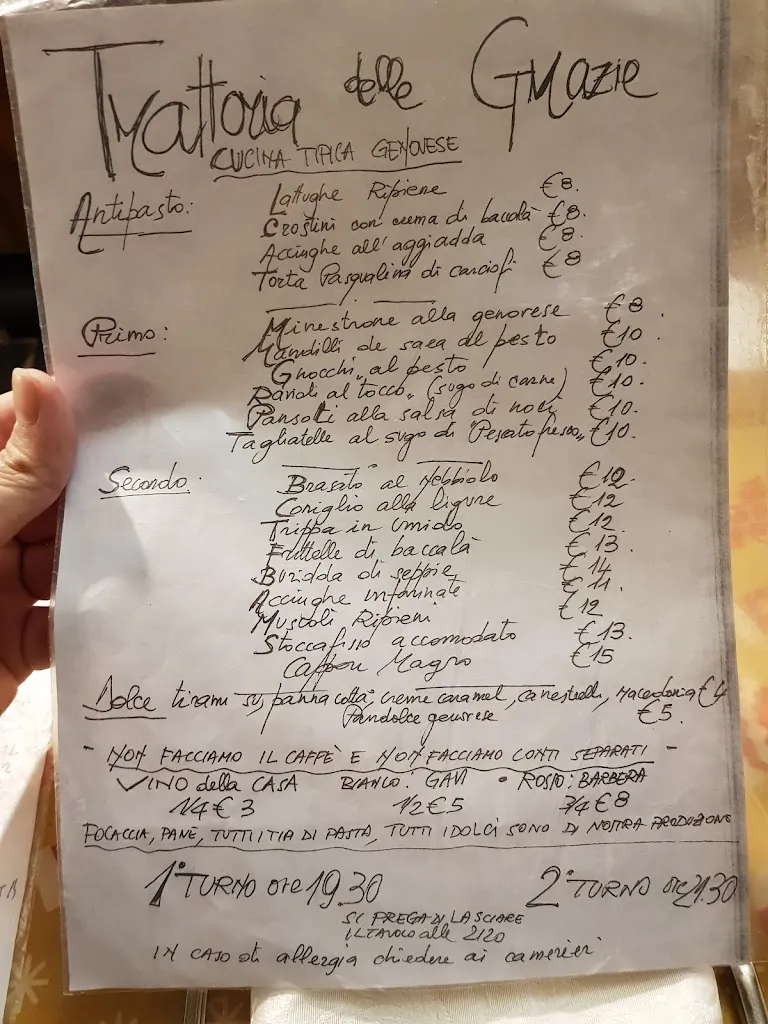 Trattoria delle Grazie
CUCINA TIPICA GENOVESE
Antipasto: Lattughe Ripiene €8.
Crostini con crema di baccalà €8.
Acciughe all'aggiadda €8.
Torta Pasqualina di carciofi €8
Primo: Minestrone alla genovese €8.
Mandilli de saea al pesto €10.
Gnocchi al pesto €10.
Ravioli al tocco (sugo di carne) €10.
Pansoti alla salsa di noci €10.
Tagliatelle al sugo di "Pescato fresco" €10.
Secondo. Brasato al Nebbiolo €12.
Coniglio alla ligure €12
Trippa in umido €12.
Frittelle di baccalà €13.
Buridda di seppie €14
Acciughe infarinate €11.
Muscoli Ripieni €12
Stoccafisso accomodato €13.
Cappon Magro €15
Dolce tiramisu, panna cotta, creme caramel, canestrelli, Macedonia €4
Pandolce genovese €5.
- NON FACCIAMO IL CAFFÈ E NON FACCIAMO CONTI SEPARATI -
VINO della CASA BIANCO: GAVI • ROSSO: BARBERA
1/4 € 3 1/2 € 5 3/4 € 8
FOCACCIA, PANE, TUTTI I TIPI DI PASTA, TUTTI I DOLCI SONO DI NOSTRA PRODUZIONE
1° TURNO ore 19.30 2° TURNO ore 21.30
SI PREGA DI LASCIARE
IL TAVOLO alle 2120
IN CASO di allergia chiedere ai camerieri